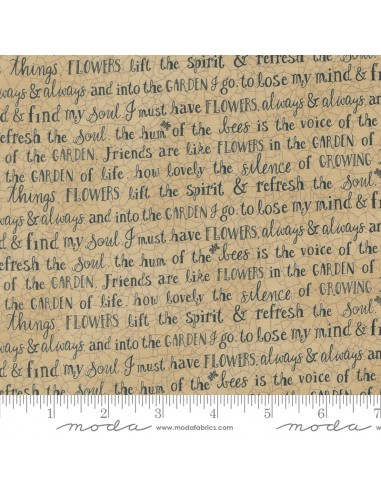 things. FLOWERS lift the Spirit & refresh the Soul.
always & always. and into the GARDEN I go. to lose my mind &
d & find my Soul. I must have FLOWERS, always & always. and
refresh the Soul. the hum of the bees is the voice of the
of the GARDEN. Friends are like FLOWERS in the GARDEN of
the GARDEN of life. how lovely the silence of GROWING
things. FLOWERS lift the Spirit & refresh the Soul.
ways & always. and into the GARDEN I go. to lose my mind & f
& find my Soul. I must have FLOWERS, always & always. an
efresh the Soul. the hum of the bees is the voice of the
of the GARDEN. Friends are like FLOWERS in the GARDEN
the GARDEN of life. how lovely the silence of GROWING
things. FLOWERS lift the Spirit & refresh the Soul.
ways & always. and into the GARDEN I go. to lose my mind & f
d & find my Soul. I must have FLOWERS, always & always. an
refresh the Soul. the hum of the bees is the voice of the
1 2 3 4 5 6 7
moda www.modafabrics.com moda